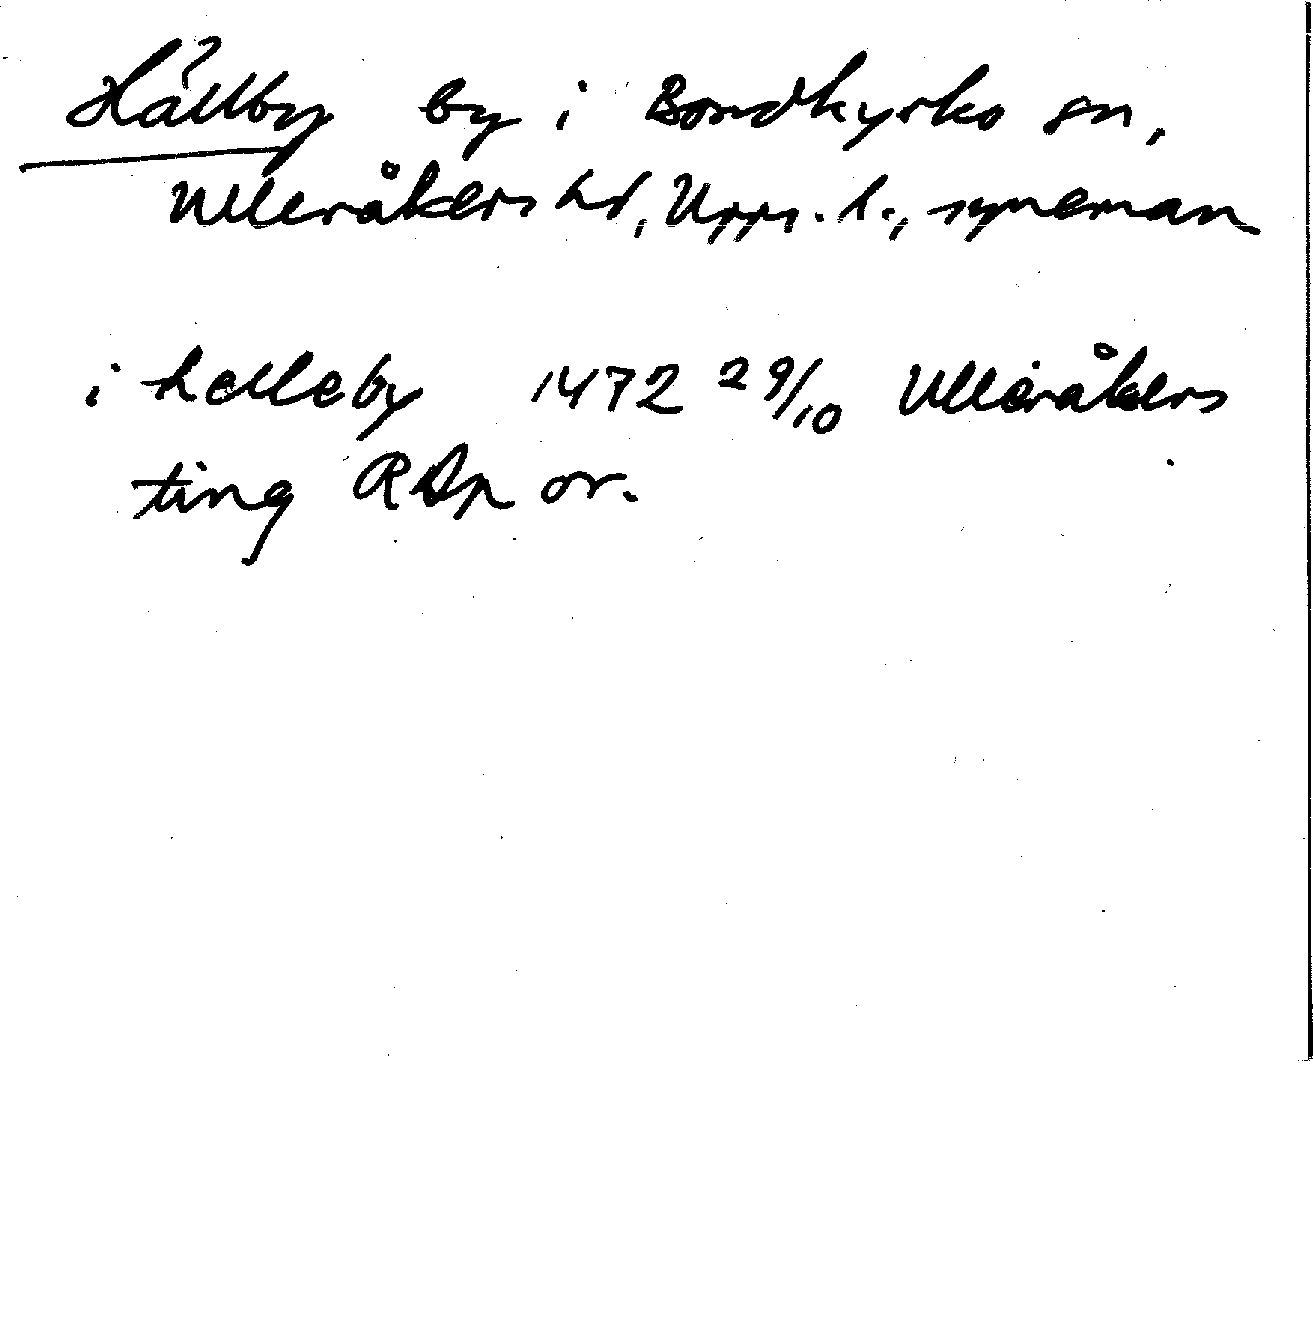 Hällby by i Bondkyrko sn,
Ulleråkers hd, Upps. l., syneman
i helleby 1472 29/10 Ulleråkers
ting RAp or.